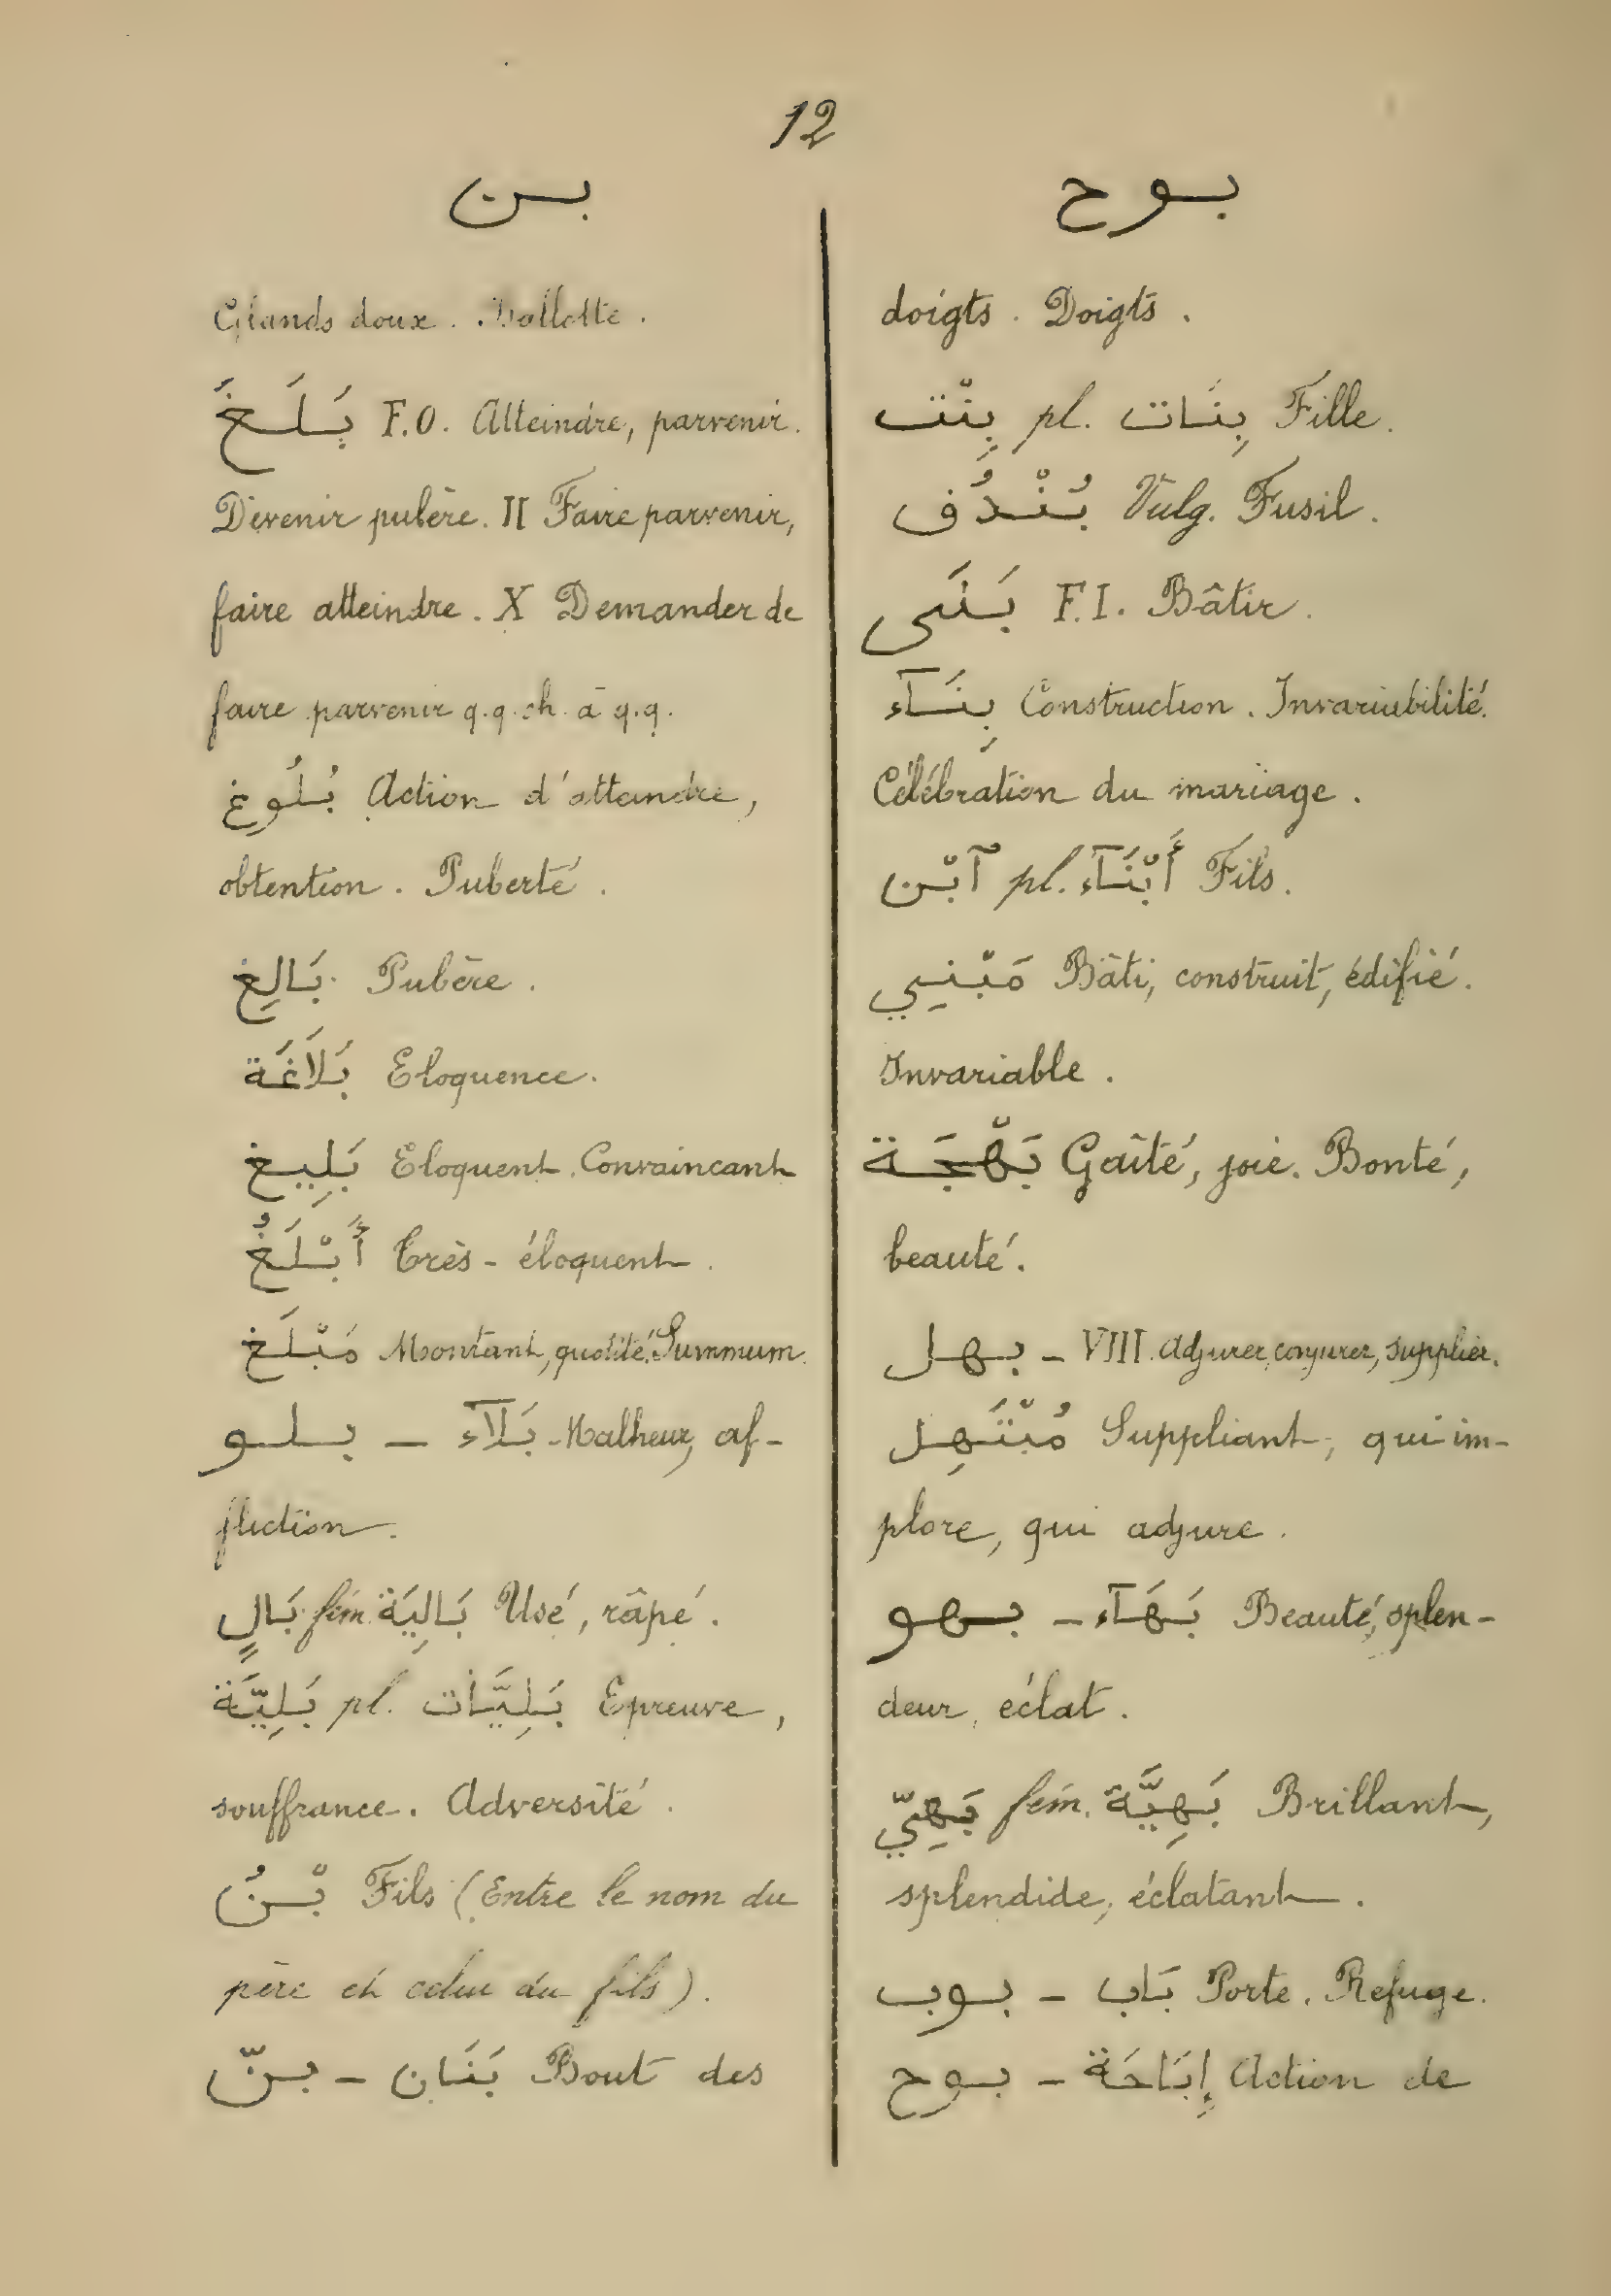 12
بن
Glands doux. Ballotte.
بَلَغَ F.O. Atteindre, parvenir.
Devenir pubère. II Faire parvenir,
faire atteindre. X Demander de
faire parvenir q.q.ch. à q.q.
بُلُوغ Action d'atteindre,
obtention. Puberté.
بَالِغ Pubère.
بَلَاغَة Eloquence.
بَلِيغ Eloquent. Convaincant
أَبْلَغُ Très-éloquent.
مَبْلَغ Montant, quotité. Summum.
بلو – بَلَآء Malheur, af-
fliction.
بَالٍ fém. بَالِيَة Usé, râpé.
بَلِيَّة pl. بَلِيَّات Epreuve,
souffrance. Adversité.
بْنُ Fils (Entre le nom du
père et celui du fils).
بنّ – بَنَان Bout des
بوح
doigts. Doigts.
بِنْت pl. بِنَات Fille.
بُنْدُف Vulg. Fusil.
بَنَى F.I. Bâtir.
بِنَآء Construction. Invariabilité.
Célébration du mariage.
آبْن pl. أَبْنَآء Fils.
مَبْنِي Bâti, construit, édifié.
Invariable.
بَهْجَة Gaîté, joie. Bonté,
beauté.
بهل – VIII. Adjurer, conjurer, supplier.
مُبْتَهِل Suppliant, qui im-
plore, qui adjure.
بهو – بَهَآء Beauté, splen-
deur, éclat.
بَهِيّ fém. بَهِيَّة Brillant,
splendide, éclatant.
بوب – بَاب Porte. Refuge.
بوح – إِبَاحَة Action de